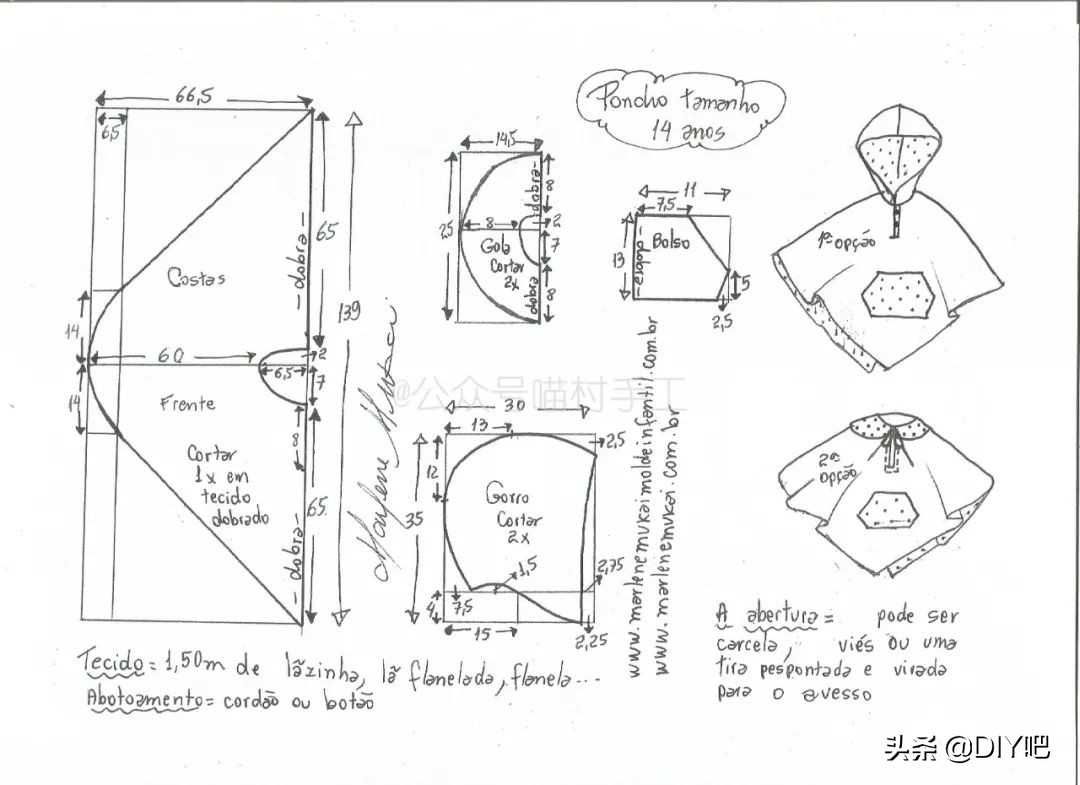 Poncho tamanho
14 anos
66,5
6,5
65
dobra
Costas
139
14
60
2
6,5
7
14
Frente
8
Cortar
1x em
tecido
dobrado
65
dobra
14,5
dobra
8
25
8
2
Gola
Cortar
2x
7
dobra
8
11
7,5
Bolso
13
dobra
5
2,5
1ª opção
30
13
2,5
12
Gorro
Cortar
2x
35
1,5
2,75
4
7,5
15
2,25
Marlene Mukai
www.marlenemukaimoldeinfantil.com.br
www.marlenemukai.com.br
2ª
opção
@公众号喵村手工
Tecido = 1,50m de lãzinha, lã flanelada, flanela...
Abotoamento = cordão ou botão
A abertura = pode ser
carcela, viés ou uma
tira pespontada e virada
para o avesso
头条 @DIY吧